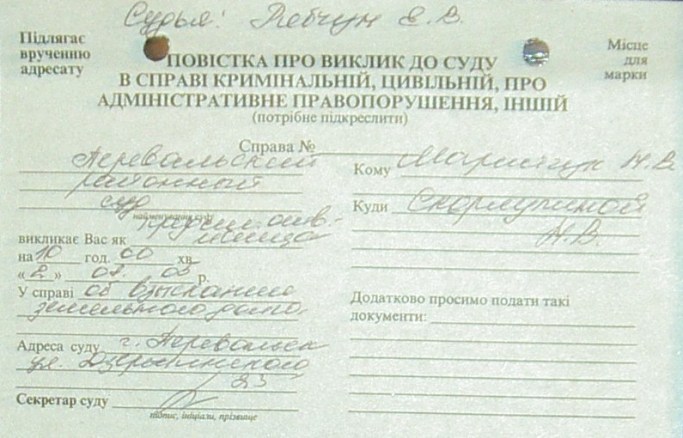 Судья: Рябчун Е.В.
Підлягає
врученню
адресату
Місце
для
марки
ПОВІСТКА ПРО ВИКЛИК ДО СУДУ
В СПРАВІ КРИМІНАЛЬНІЙ, ЦИВІЛЬНІЙ, ПРО
АДМІНІСТРАТИВНЕ ПРАВОПОРУШЕННЯ, ІНШІЙ
(потрібне підкреслити)
Справа №
Перевальский
районный
суд
найменування суду
викликає Вас як
на 10 год. 00 хв.
«2» 03 р.
У справі об взыскании
земельного
Адреса суду г. Перевальск
ул. Дзержинского
23
Секретар суду
підпис, ініціали, прізвище
Кому Н.В.
Куди Скорлупиной
Н.В.
Додатково просимо подати такі
документи: